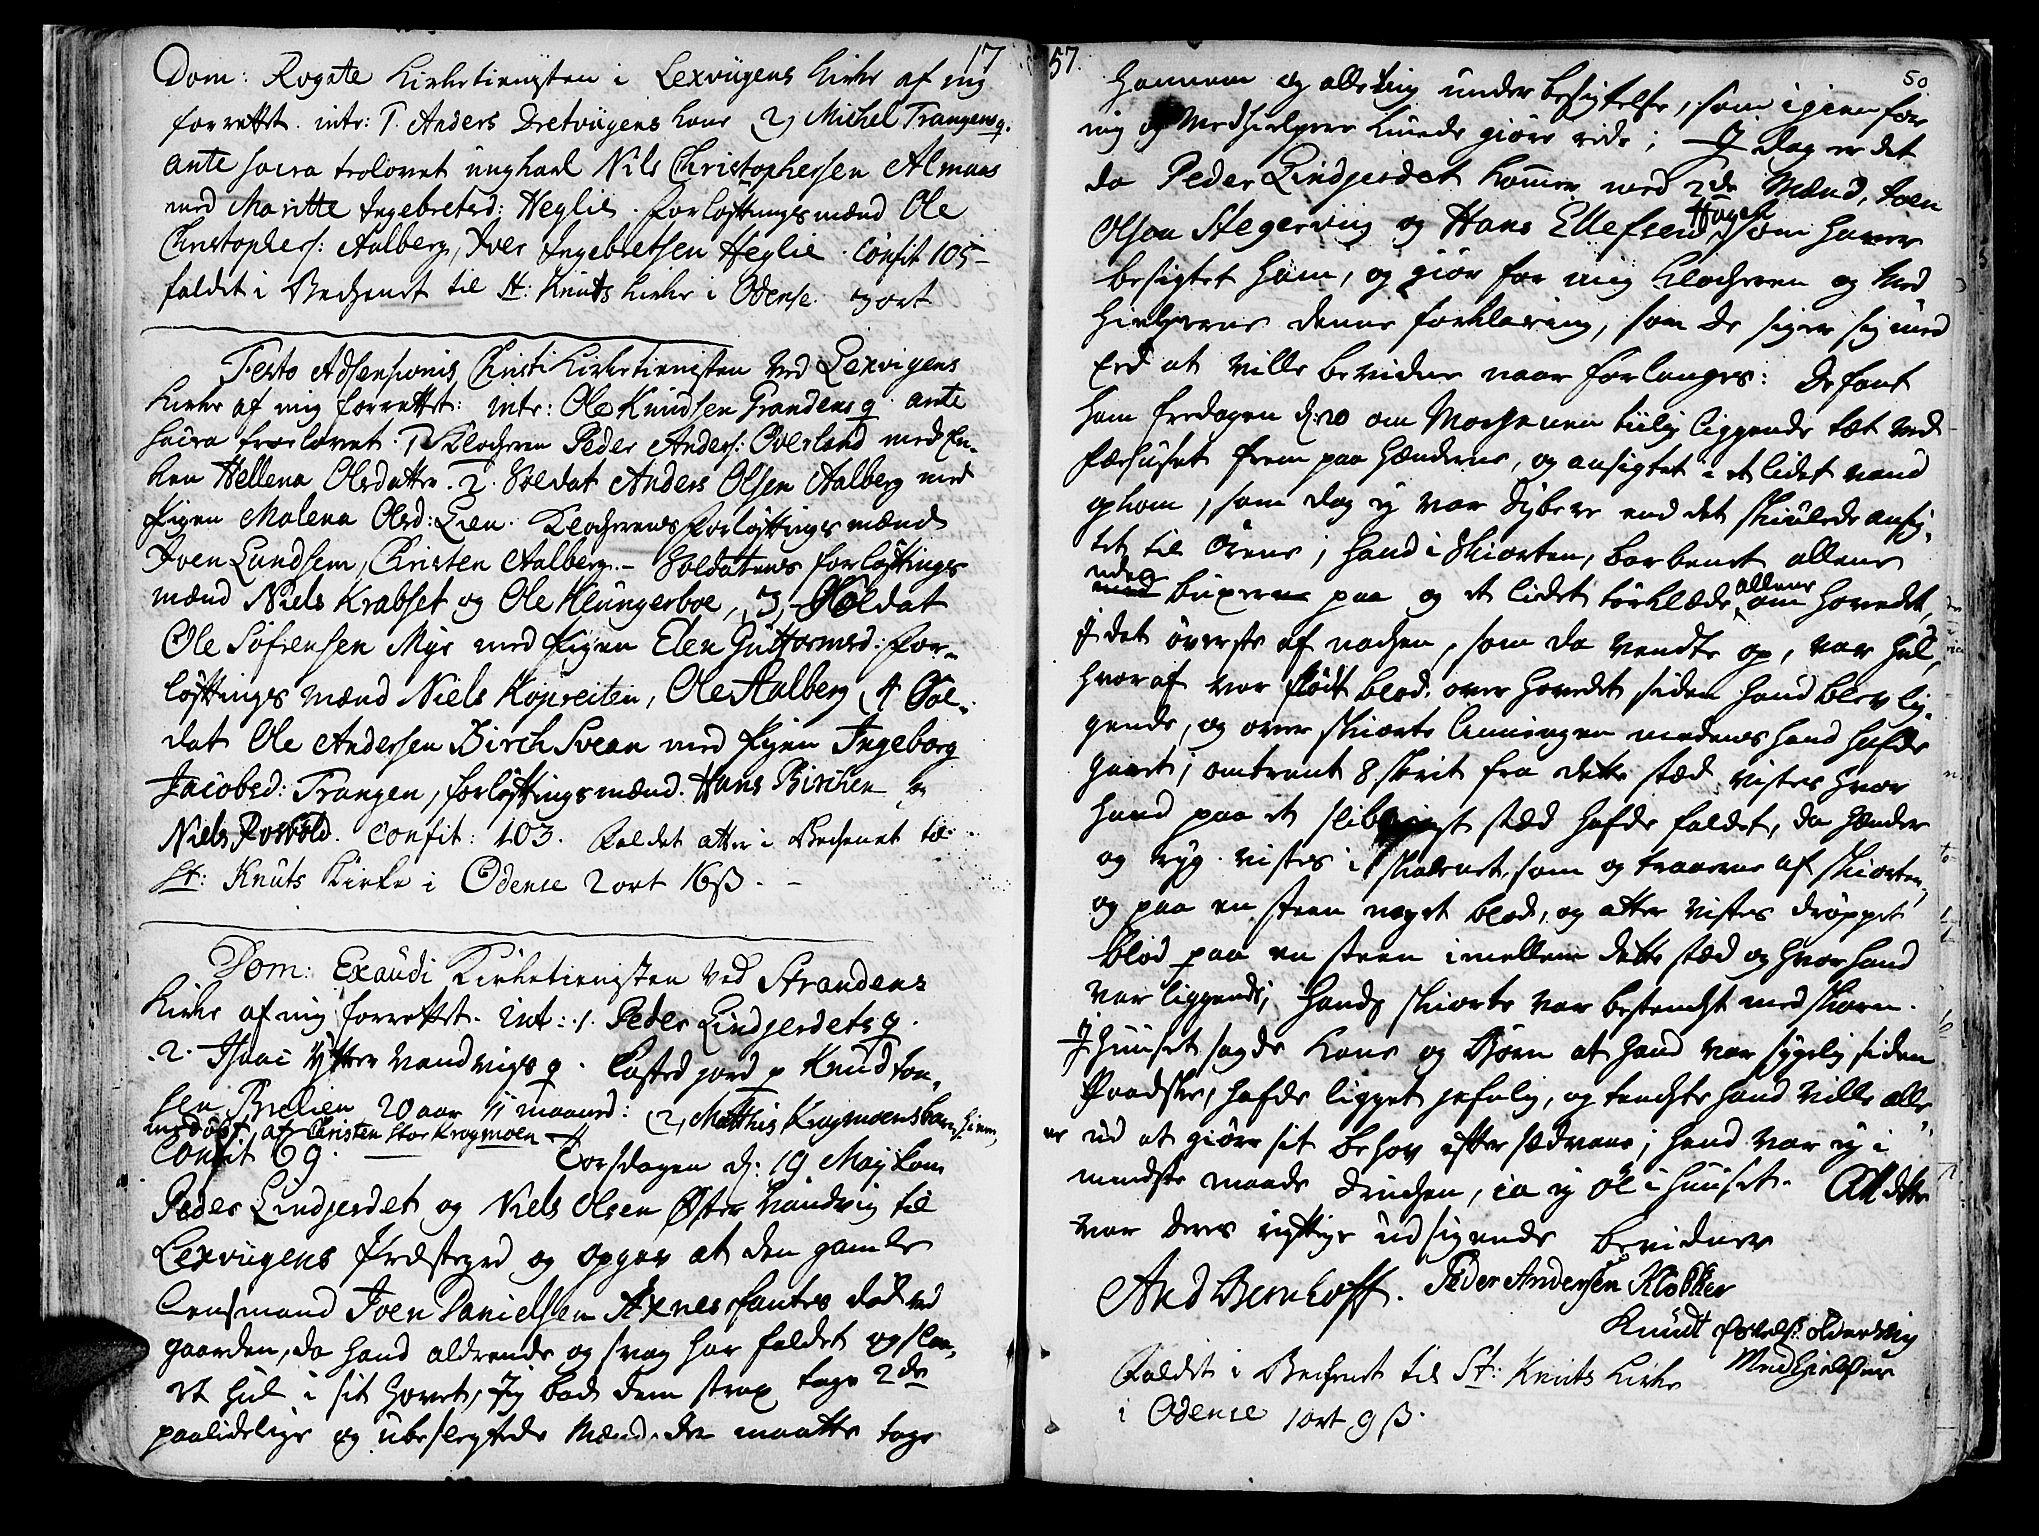 17
Dom: Rogate Kirketienesten i Lexvigens Kirke af mig
forrettet. intr: 1. Anders Dretvigens kone 2, Michel Trangens q.
ante sacra trolovet ungkarl Nils Christophersen Almaas
med Maritte Ingebretsd: Heglie. forløftingsmænd Ole
Christophers: Aalberg, Iver Ingebretsen Heglie. Confit 105 –
faldet i Bechenet til St: Knuts Kirke i Odense. 3 ort
Festo Adsensionis Christi Kirketienesten ved Lexvigens
Kirke af mig forrettet: intr: Ole Knudsen Grandens q. ante
sacra trolovet. 1. Klocheren Peder Anders: Overland med En-
ken Hellena Olsdatter. 2. Soldat Anders Olsen Aalberg med
Pigen Malena Olsd: Lien. Klocherens forløftingsmænd
Joen Lundsem, Christen Aalberg. – Soldatens forløftings
mænd Niels Krabset og Ole Heungerboe, 3, Soldat
Ole Sofrensen Myr med Pigen Elen Guttormsd: For-
løftings mænd Niels Kopreiten, Ole Aalberg 4 Sol-
dat Ole Andersen Birch Svean med Pigen Ingeborg
Jacobsd: Trangen, forløftingsmænd. Hans Birchen
Niels Rosvold. Confit: 103. Faldet atter i Bechenet til
St: Knuts Kirke i Odense 2 ort 16 ß. –
Dom: Exaudi Kirketienesten ved Strandens
Kirke af mig forrettet. Int: 1. Peder Lindjerdets q.
2. Isaac Ytter Vandvigs q. Casted jord p Knud Joen-
sen Brelien 20 aar 11 maaned: 2, Matthis Kragmoens barn, hiem-
medøbt, af Christen Stor Kragmoen
Confit 69. Torsdagen d: 19 Maij kom
Peder Lindjerdet og Niels Olsen Øster Vandvig til
Lexvigens Præstegrd og opgav at den gamle
Lensmand Joen Danielsen Axnes fantes død ved
gaarden, da hand aldrende og svag har faldet og slaa-
et hul i sit hovet, Jeg bad dem strax tage 2de
paalidelige og ubeslegtede Mænd. den maatte tage
57.
50
hannem og alleting under besigtelse, som igien for
mig og Medhielpere kunde giøre rede; I dag er det
da Peder Lindjerdet kommer med 2de Mænd, Joen
Olsen Hegerviig og Hans Ellefsen Hagen, som haver
besigtet ham, og giør for mig Klocheren og Med
hielperne denne forklaring, som de siger sig med
Eed at ville bevidne naar forlanges: De fant
ham fredagen d: 20 om Morgenen tiilig liggende tæt ved
Færhuset frem paa hænderne, og ansigtet i et lidet vand
som dog ey var dybere end det skiulede ansig-
tet til Ørene; hand i Skiorten, barbeent allene
uden buxer paa og et lidet tørklæde allene om hovedet,
I det øverste af nachen, som da vendte op, var hul,
hvoraf var flødt blod over hovedet siden hand blev lig-
gende, og over skiorte linningen medens hand hafde
gaaet; omtrent 8 skrit fra dette stæd vistes hvor
hand paa et slibrigt stæd hafde faldet, da hænder
og ryg vistes i skarnet, som og traaerne af skiorten,
og paa en steen noget blod, og atter vistes drøppet
blod paa en steen imellem dette stæd og hvor hand
var liggende; hands skiorte var bestencht med skarn.
I huuset sagde kone og børn at hand var sygelig siden
Paadske, hafde ligget jefnlig, og tenchte hand ville alle-
ne ud at giøre sit behov efter sædvane; hand var ey i
mindste maade druchen, ja ey øl i huuset. Alt dette
var deres rigtige udsigende bevidner
And Bernhoff. Peder Andersen Klokker
Knudt olderviig
Medhielper
Faldet i Bechenet til St: Knuts Kirke
i Odense 1 ort 9 ß.